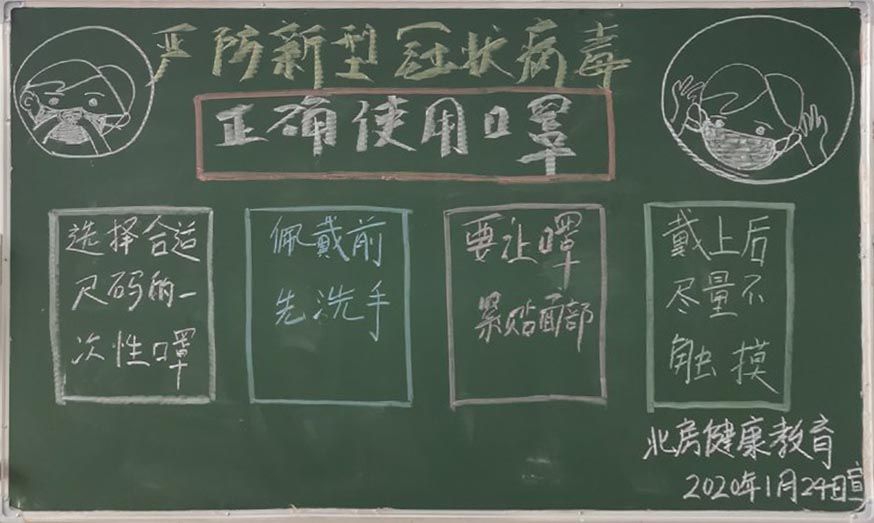 严防新型冠状病毒
正确使用口罩
选择合适
尺码的一
次性口罩
佩戴前
先洗手
要让罩
紧贴面部
戴上后
尽量不
触摸
北房健康教育
2020年1月24日宣